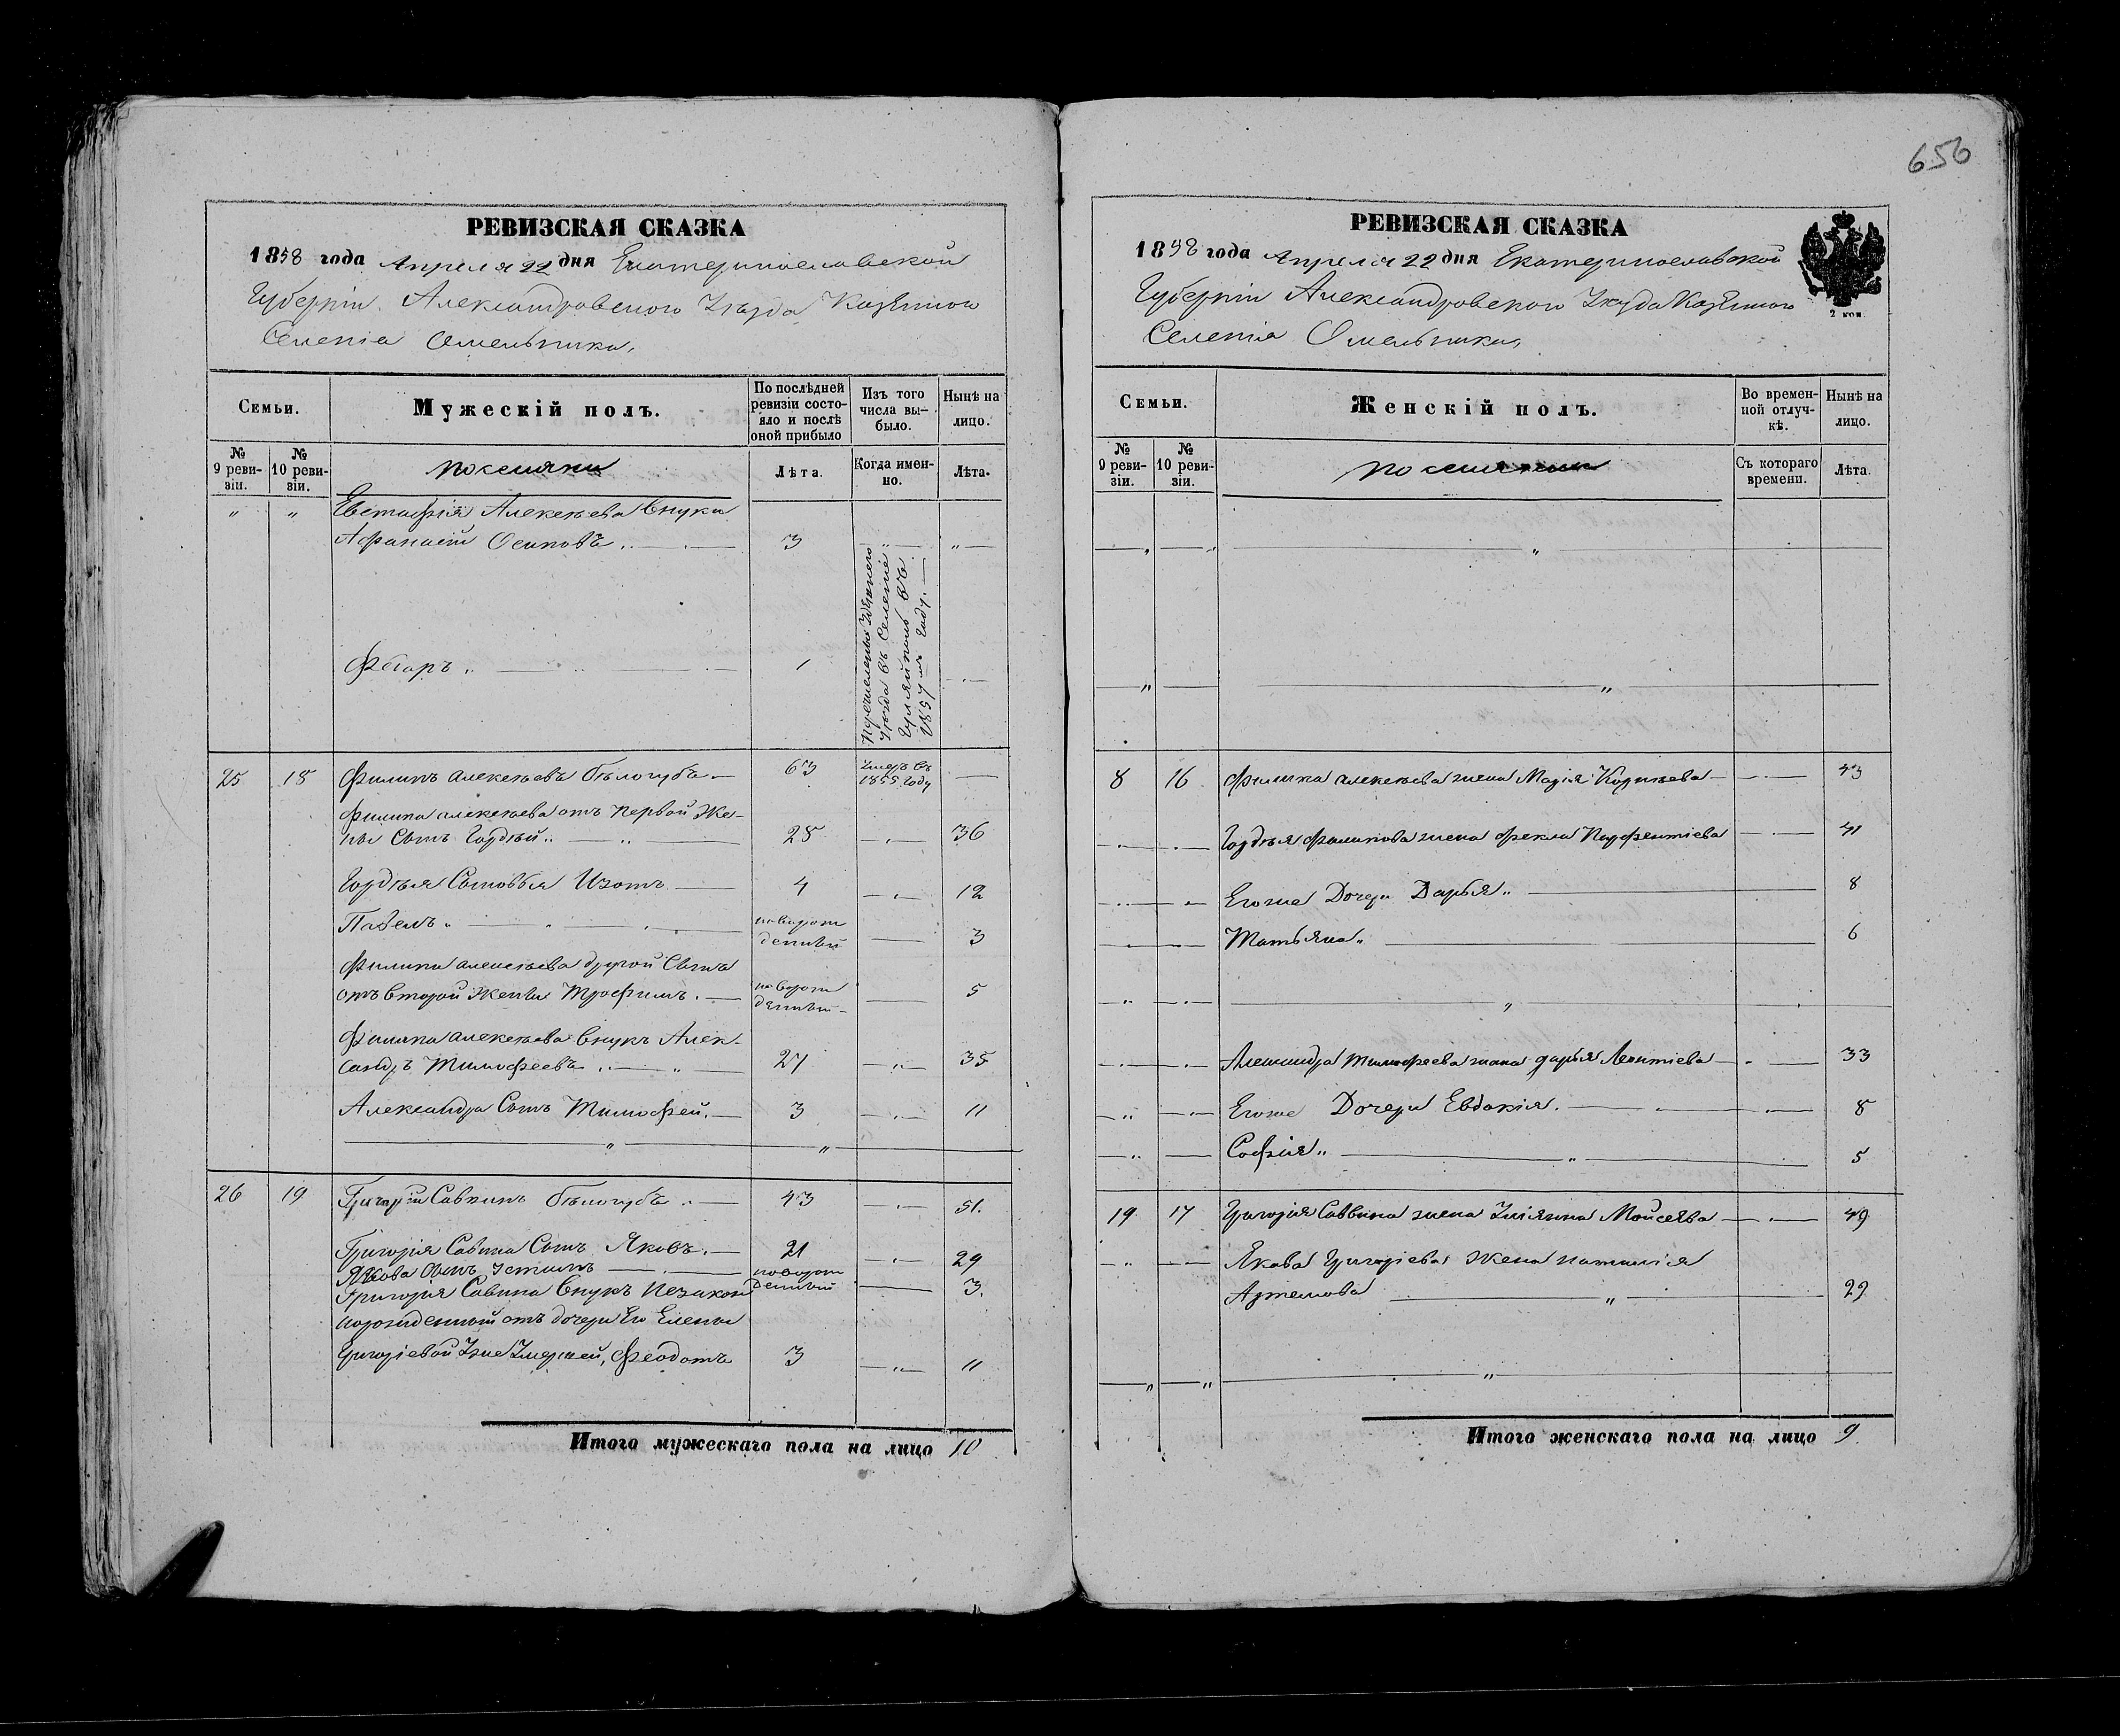 656
РЕВИЗСКАЯ СКАЗКА
1858 года Апреля 22 дня Екатеринославской
Губерніи Александровского Уѣзда Казенного
Селенія Омельника,
Семьи.
Мужескій полъ.
По послѣдней ревизіи состояло и послѣ оной прибыло
Изъ того числа выбыло.
Нынѣ на лицо.
№ 9 ревизіи.
№ 10 ревизіи.
поселяни
Лѣта.
Когда именно.
Лѣта.
" " Евстафія Алексѣева внуки
Афанасій Осиповъ 3 " "
Перечисленъ здешнего уѣзда въ Селеніе Гуляйполь въ 1857мъ Году.
Фёдоръ 1
25 18 Филипъ Алексѣевъ Бѣлогубъ 63 умеръ въ 1855 Году
Филипа Алексѣева отъ первой Же-
ны Сынъ Гордѣй 28 36
Гордѣя Сыновья Изотъ 4 12
Павелъ новорожденый 3
Филипа Алексѣева другой Сынъ
отъ второй Жены Трофимъ новорожденый 5
Филипа Алексѣева внукъ Алек-
сандръ Тимофеевъ 27 35
Александра Сынъ Тимофей 3 11
26 19 Григорій Савинъ Бѣлогубъ 43 51.
Григорія Савина Сынъ Яковъ 21 29
Якова Сынъ Устинъ новорожденый 3.
Григорія Савина внукъ незакон
норожденный отъ дочери Его Елены
Григоріевой Уже Умершей, Феодотъ 3 11
Итого мужескаго пола на лицо 10
РЕВИЗСКАЯ СКАЗКА
1858 года Апреля 22 дня Екатеринославской
Губерніи Александровского Уѣзда Казенного
Селенія Омельника,
2 коп.
Семьи.
Женскій полъ.
Во временной отлучкѣ.
Нынѣ на лицо.
№ 9 ревизіи.
№ 10 ревизіи.
Съ котораго времени.
Лѣта.
8 16 Филипа Алексѣева жена Марія Корнѣева 43
Гордѣя Филипова жена Фекла Парфентіева 31
Егоже Дочери Дарья 8
Татьяна 6
Александра Тимофеева жена Дарья Леонтіева 33
Егоже Дочери Евдокія 8
Софія 5
19 17 Григорія Саввина жена Уліянна Мойсеева 49
Якова Григоріева Жена Наталія
Артемова 29
Итого женскаго пола на лицо 9